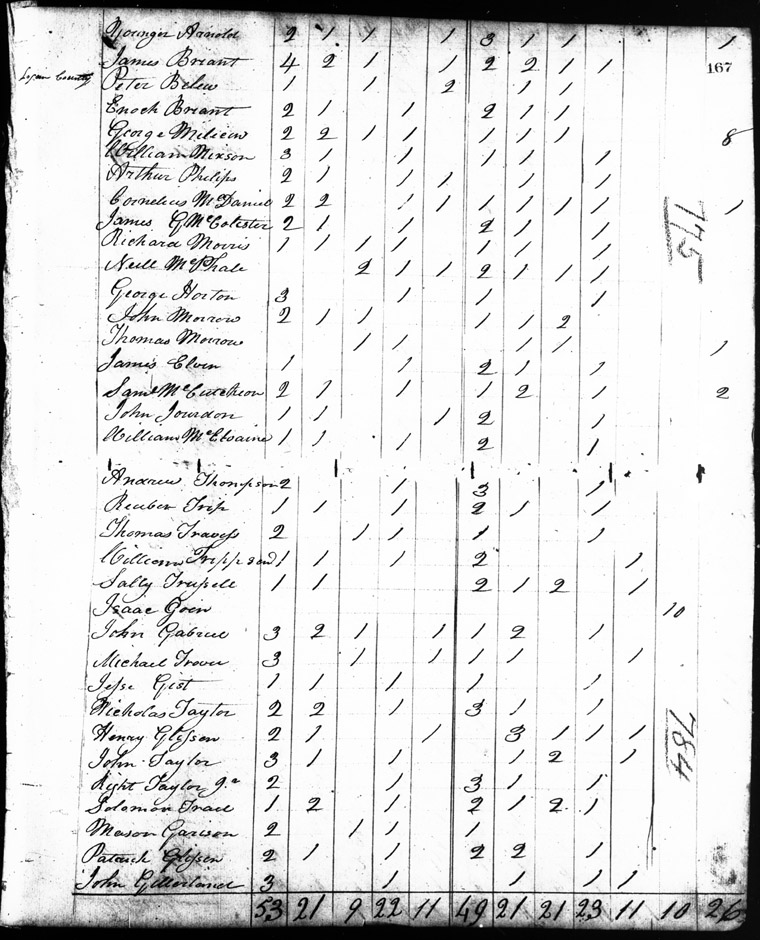 Younger Arnold 2 1 1 1 3 1 1 1
James Briant 4 2 1 1 2 2 1 1 167
Logan County Peter Belew 1 1 2 1 1
Enoch Briant 2 1 1 2 1 1
George 2 2 1 1 1 1 1 8
William Mixson 3 1 1 1 1 1
Arthur Philips 2 1 1 1 1 1
Cornelius McDaniel 2 2 1 1 1 1 1 1 1
James G McColester 2 1 1 2 1 1
Richard Morris 1 1 1 1 1 1 1
Neill McPhale 2 1 1 2 1 1 1
George Horton 3 1 1 1
John Morrow 2 1 1 1 1 2
Thomas Morrow 1 1 1 1 1
James Elvin 1 1 2 1 1
Saml McCutcheon 2 1 1 1 2 1 2
John Jourdon 1 1 1 2 1
William McElvaine 1 1 1 2 1
775
Andrew Thompson 2 1 3 1
Reuben Trip 1 1 1 2 1 1
Thomas Travess 2 1 1 1 1
William 1 1 1 2 1
Sally 1 1 2 1 2 1
Isaac Goen 10
John Gabriel 3 2 1 1 1 2 1
Michael Trover 3 1 1 1 1 1
Jesse Gist 1 1 1 1 1
Nicholas Taylor 2 2 1 3 1 1
Henry Glessen 2 1 1 3 1 1 1
John Taylor 3 1 1 1 2 1
Right Taylor Jr 2 1 3 1 1
Solomon Trael 1 2 1 2 1 2 1
Mason Garison 2 1 1 1
Patrick Glessen 2 1 1 2 2 1
John Gillerland 3 1 1 1 1
784
53 21 9 22 11 49 21 21 23 11 10 26